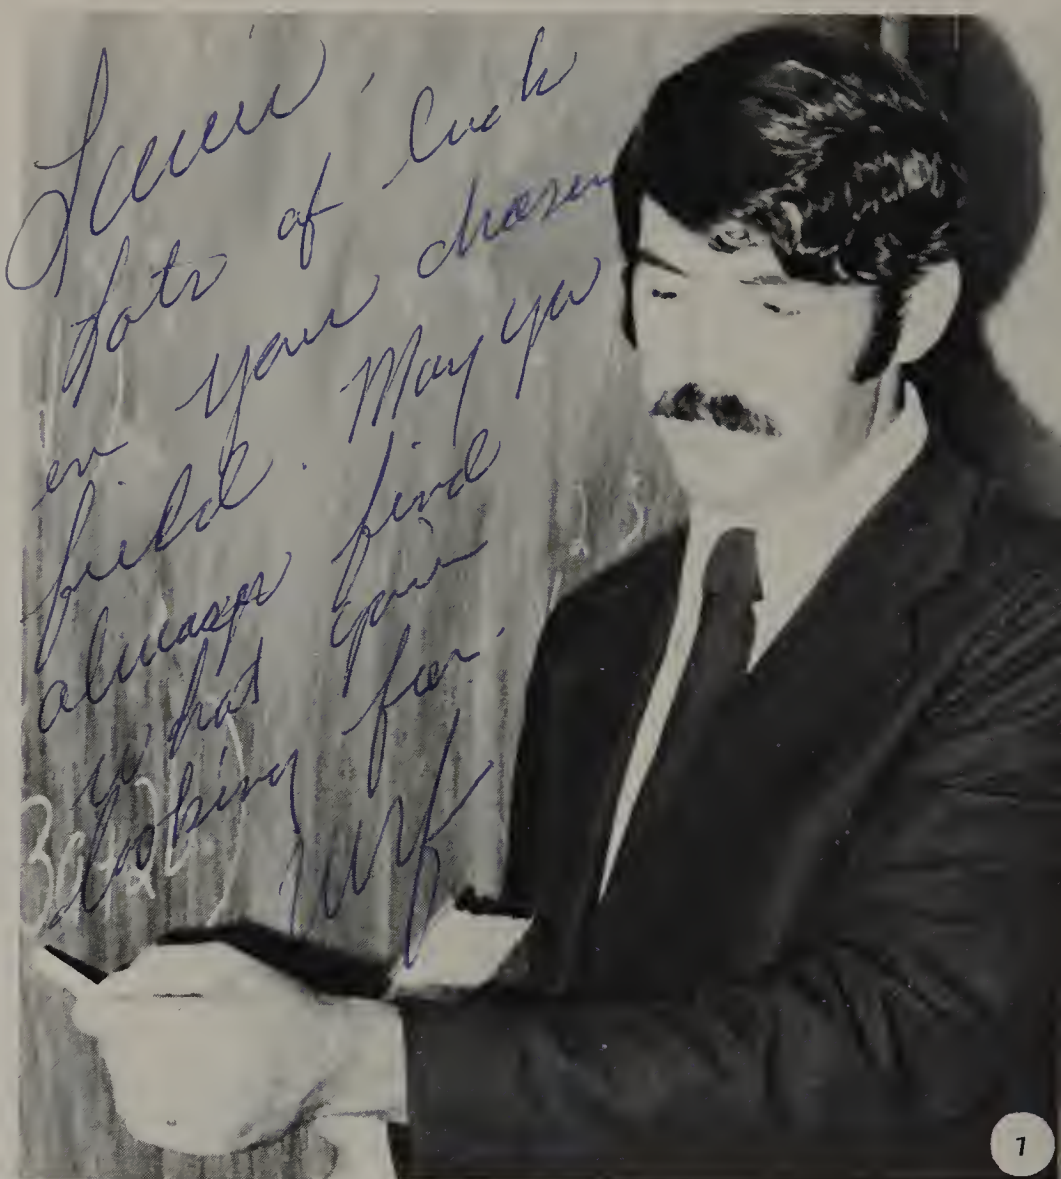 Lots of luck
in your chosen
field. May you
always find
what your
looking for.
7